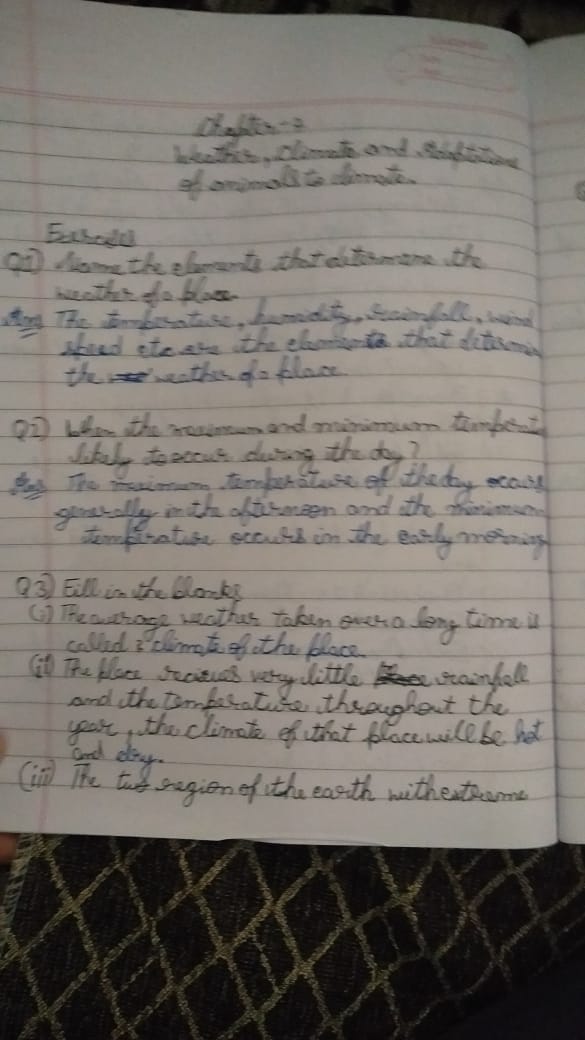 Chapter-7
Weather, Climate and Adaptations
of animals to climate.
Exercises
Q1) Name the elements that determine the
weather of a place
Ans The temperature, humidity, rainfall, wind
speed etc are the elements that determine
the weather of a place
Q2) When the maximum and minimum temperature
likely to occur during the day?
Ans The maximum temperature of the day occurs
generally in the afternoon and the minimum
temperature occurs in the early morning
Q3) Fill in the blanks
(i) The average weather taken over a long time is
called climate of the place.
(ii) The place recieves very little rainfall
and the temperature throughout the
year, the climate of that place will be hot
and dry.
(iii) The two region of the earth with extreme